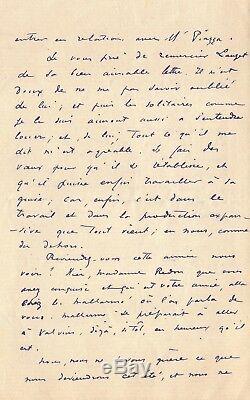 entrer en relations, avec Mr Piazza.
Je vous prie de remercier Lauzet
de sa bien aimable lettre. Il m'est
doux de ne me pas savoir oublié
de lui ; et puis les solitaires comme
je le suis aiment aussi à s'entendre
louer ; et, de lui, tout ce qu'il me
dit m'est agréable. Je fais des
vœux pour qu'il se rétablisse, et
qu'il puisse enfin travailler à sa
guise ; car, enfin, c'est dans le
travail et dans la production expan-
sive que tout vient ; en nous, comme
du dehors.
Reviendrez-vous cette année nous
voir ? Hier, madame Redon que vous
avez conquise et qui est votre amie, alla
chez les Mallarmé où l'on parla de
vous. Mallarmé se préparait à aller
à Valvins, déjà, si tôt, en heureux qu'il
est.
Nous, nous ne savons guère ce que
nous deviendrons cet été, et nous ne